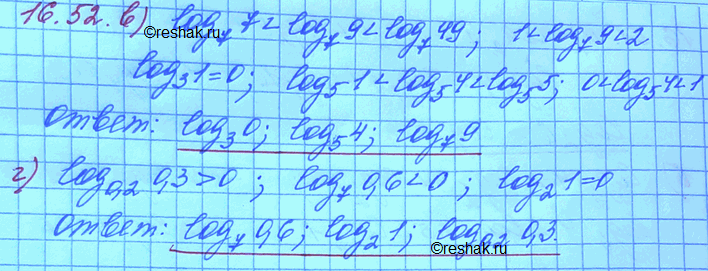 16.52. в) log₇ 7 < log₇ 9 < log₇ 49; 1 < log₇ 9 < 2
©reshak.ru
log₃ 1 = 0; log₅ 1 < log₅ 4 < log₅ 5; 0 < log₅ 4 < 1
ответ: log₃ 0; log₅ 4; log₇ 9
г) log₀,₂ 0,3 > 0; log₇ 0,6 < 0; log₂ 1 = 0
ответ: log₇ 0,6; log₂ 1; log₀,₂ 0,3.
©reshak.ru